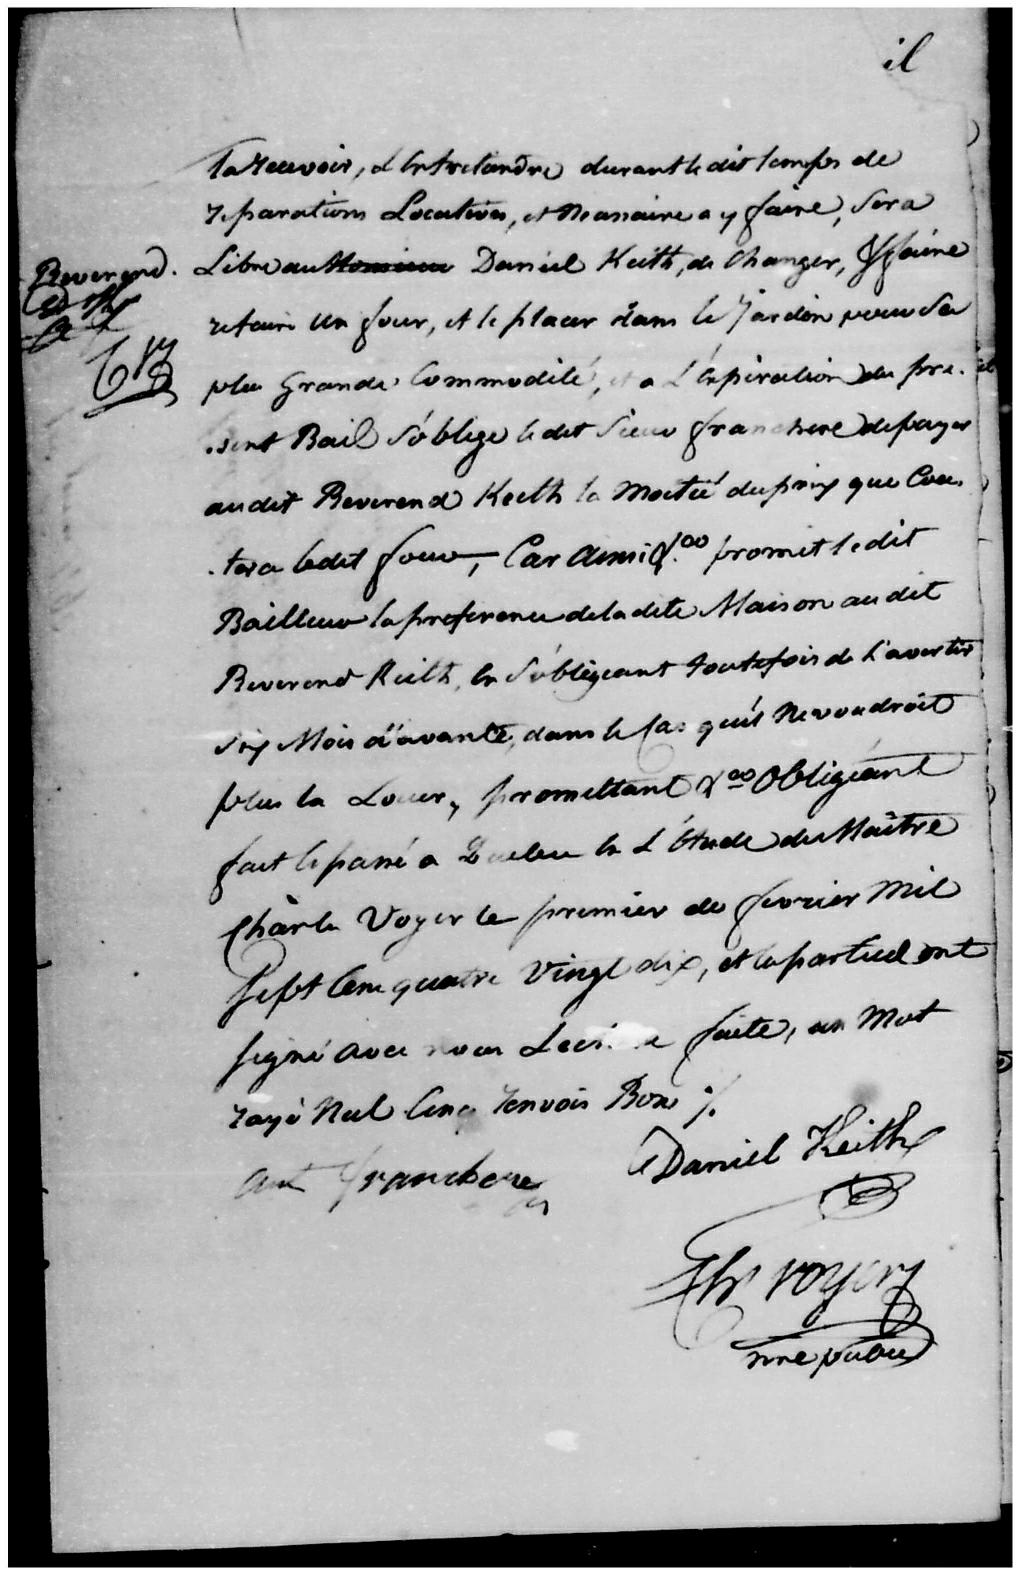 il
La recevoir, d'Entretendre durant le dit temps de
reparations Locatives, et Necessaire a y faire, sera
Reverend.
Libre au Monsieur Daniel Keith, de Changer, & faire
refaire un four, et le placer dans le Jardin pour sa
plus Grande Commodité, et a L'Expiration du pre-
sent Bail s'oblige le dit Sieur franchere de payer
au dit Reverend Keith la Moitié du prix que Cou-
tera ledit four, Car Ainsi &.oo promit le dit
Bailleur la preference de la dite Maison au dit
Reverend Keith, en s'obligeant toutefois de L'avertir
six Mois d'avance, dans le Cas qu'il ne voudroit
plus la Louer, promettant &oo Obligeant
fait & passé a Quebec en L'Etude du Maitre
Charles Voyer le premier de fevrier Mil
Sept Cent quatre Vingt dix, et les parties ont
signé avec nous Lecture faite, un Mot
rayé Nul Cinq renvois Bon ./.
Ant franchere
Daniel Keith
Chs voyer
nore public